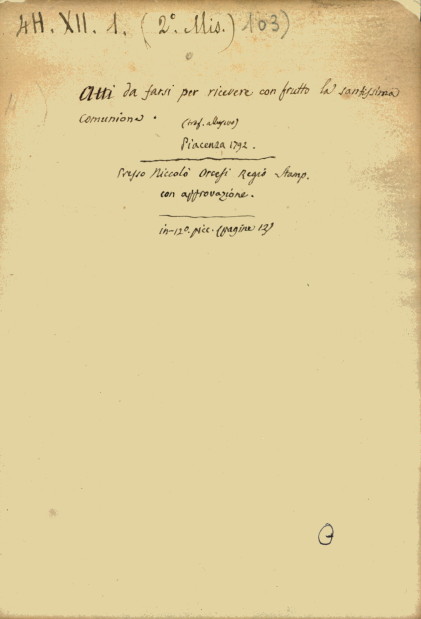 4H. XII. 1. (2° Mis.) 103)
Atti da farsi per ricevere con frutto la santissima
Comunione.
Piacenza 1792.
Presso Niccolò Orcesi Regio Stamp.
con approvazione.
in-12°. picc. (pagine 12)